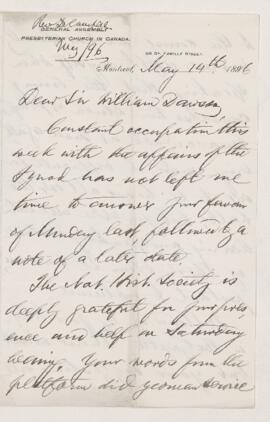 Rev. Dr. Campbell
GENERAL ASSEMBLY
PRESBYTERIAN CHURCH IN CANADA.
May/96
68 ST. FAMILLE STREET.
Montreal, May 14th 1896
Dear Sir William Dawson,
Constant occupation this
week with the affairs of the
Synod has not left me
time to answer your favour
of Monday last, followed by a
note of a later date.
The Nat. Hist. Society is
deeply grateful for your pres
ence and help on Saturday
evening. Your words from the
platform did yeoman service